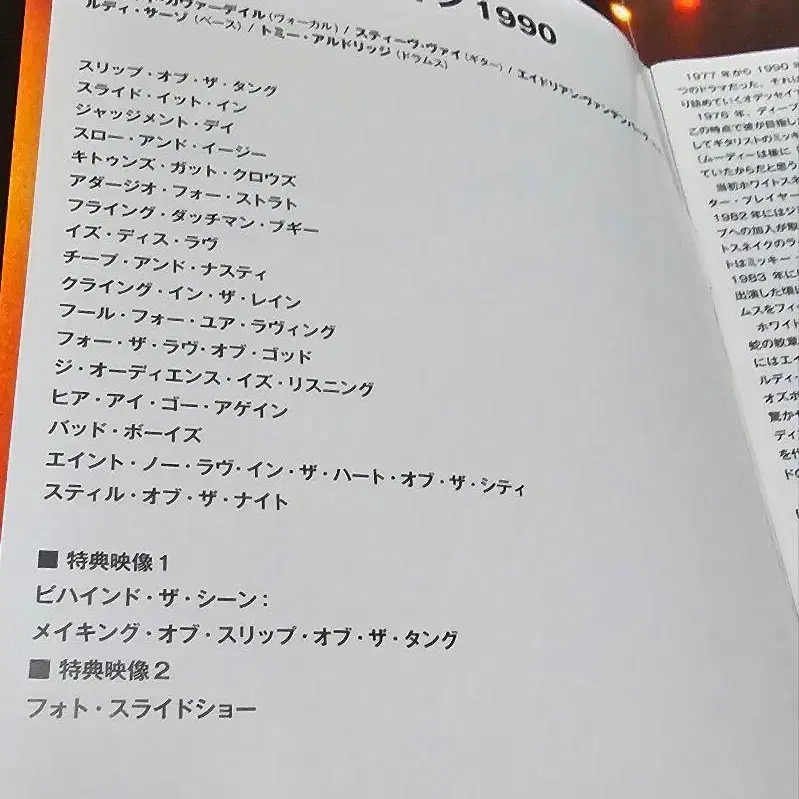 1990
カヴァーデイル(ヴォーカル) / スティーヴ・ヴァイ(ギター) / エイドリアン・ヴァンデンバーグ
ルディ・サーゾ(ベース) / トミー・アルドリッジ(ドラムス)
スリップ・オブ・ザ・タング
スライド・イット・イン
ジャッジメント・デイ
スロー・アンド・イージー
キトゥンズ・ガット・クロウズ
アダージオ・フォー・ストラト
フライング・ダッチマン・ブギー
イズ・ディス・ラヴ
チープ・アンド・ナスティ
クライング・イン・ザ・レイン
フール・フォー・ユア・ラヴィング
フォー・ザ・ラヴ・オブ・ゴッド
ジ・オーディエンス・イズ・リスニング
ヒア・アイ・ゴー・アゲイン
バッド・ボーイズ
エイント・ノー・ラヴ・イン・ザ・ハート・オブ・ザ・シティ
スティル・オブ・ザ・ナイト
■ 特典映像1
ビハインド・ザ・シーン:
メイキング・オブ・スリップ・オブ・ザ・タング
■ 特典映像2
フォト・スライドショー
1977 年から 1990 年
つのドラマだった。それは
り詰めていくオデッセイ
1976 年、ディープ
この時点で彼が目指し
してギタリストのミッキ
(ムーディーは後に
ていたからだと思う
当初ホワイトスネ
ター・プレイヤー
1982 年にはジ
プへの加入が取
トスネイクのラ
トはミッキー・
1983 年に
出演した頃に
ムスをフィ
ホワイト
蛇の紋章
にはエイ
ルディ・
オズボ
驚かや
ディ
を代
ドの